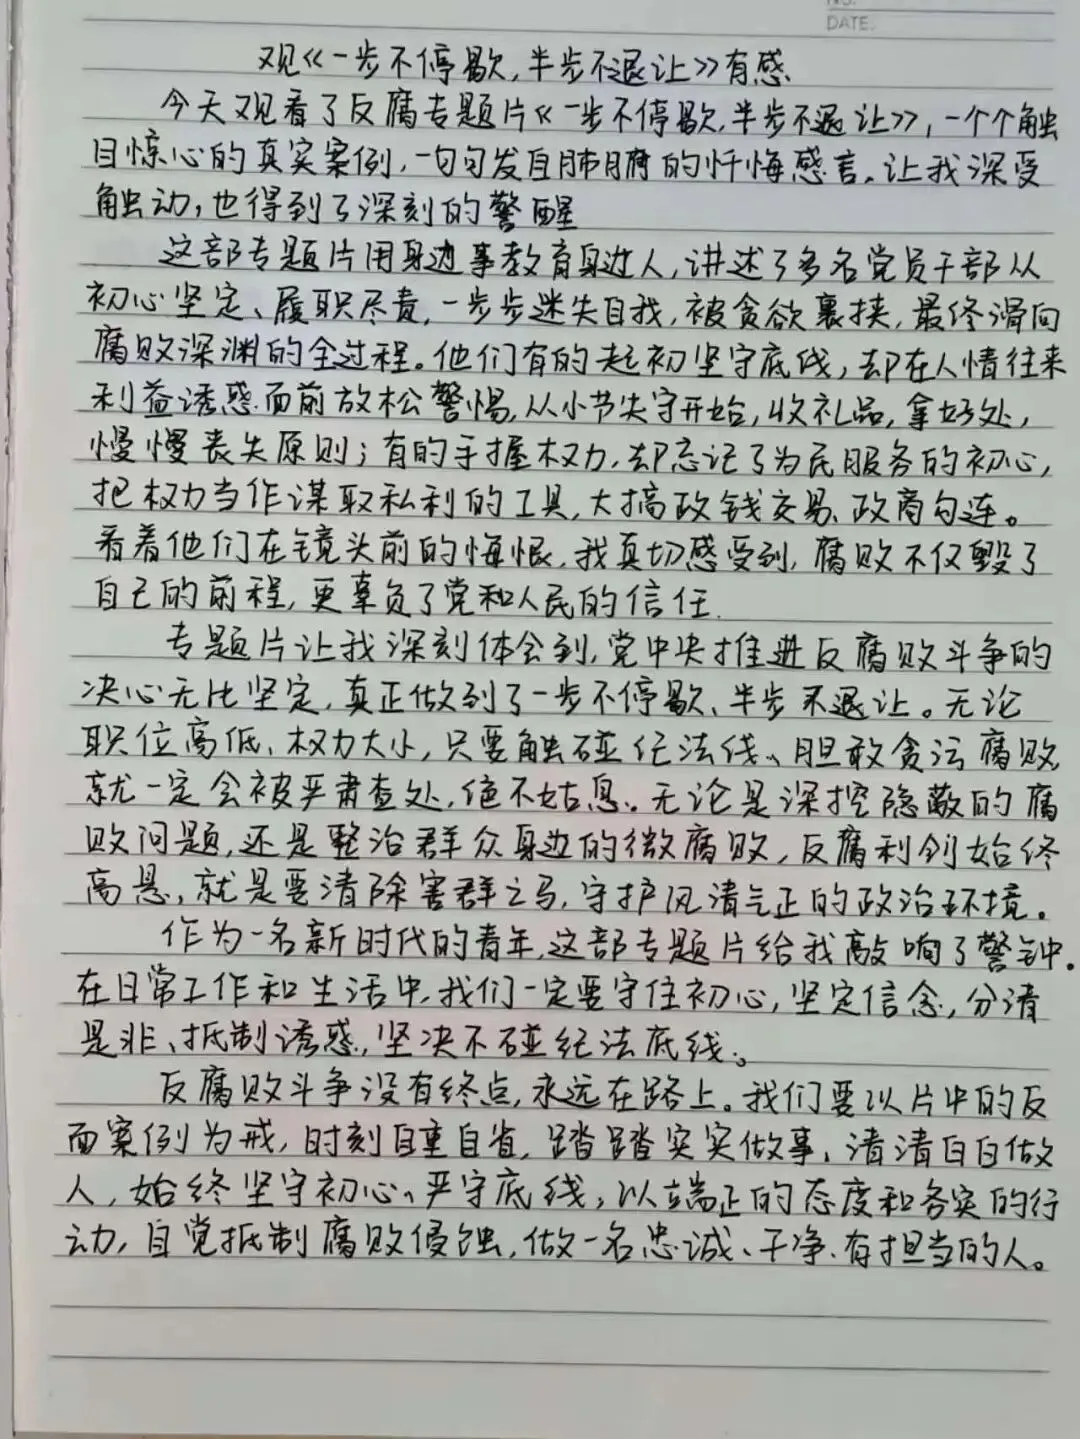 NO.
DATE.
观《一步不停歇,半步不退让》有感
今天观看了反腐专题片《一步不停歇,半步不退让》,一个个触
目惊心的真实案例,一句句发自肺腑的忏悔感言,让我深受
触动,也得到了深刻的警醒
这部专题片用身边事教育身边人,讲述了多名党员干部从
初心坚定、履职尽责,一步步迷失自我,被贪欲裹挟,最终滑向
腐败深渊的全过程。他们有的起初坚守底线,却在人情往来
利益诱惑面前放松警惕,从小节失守开始,收礼品,拿好处,
慢慢丧失原则;有的手握权力,却忘记了为民服务的初心,
把权力当作谋取私利的工具,大搞政钱交易、政商勾连。
看着他们在镜头前的悔恨,我真切感受到,腐败不仅毁了
自己的前程,更辜负了党和人民的信任.
专题片让我深刻体会到,党中央推进反腐败斗争的
决心无比坚定,真正做到了一步不停歇、半步不退让。无论
职位高低、权力大小,只要触碰纪法线、胆敢贪污腐败,
就一定会被严肃查处,绝不姑息。无论是深挖隐蔽的腐
败问题,还是整治群众身边的微腐败,反腐利剑始终
高悬,就是要清除害群之马,守护风清气正的政治环境。
作为一名新时代的青年,这部专题片给我敲响了警钟.
在日常工作和生活中,我们一定要守住初心,坚定信念,分清
是非、抵制诱惑,坚决不碰纪法底线。
反腐败斗争没有终点,永远在路上。我们要以片中的反
面案例为戒,时刻自重自省,踏踏实实做事,清清白白做
人,始终坚守初心、严守底线,以端正的态度和务实的行
动,自觉抵制腐败侵蚀,做一名忠诚、干净、有担当的人。